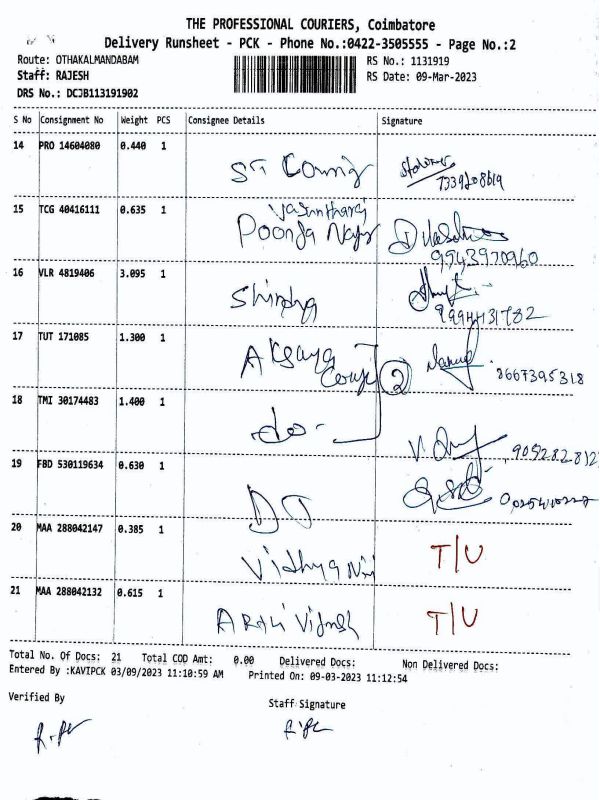 THE PROFESSIONAL COURIERS, Coimbatore
Delivery Runsheet - PCK - Phone No.:0422-3505555 - Page No.:2
Route: OTHAKALMANDABAM RS No.: 1131919
Staff: RAJESH RS Date: 09-Mar-2023
DRS No.: DCJB113191902
S No Consignment No Weight PCS Consignee Details Signature
14 PRO 14604080 0.440 1
15 TCG 40416111 0.635 1 Vasuntharaj
Pooja 9943970960
16 VLR 4819406 3.095 1
9994431782
17 TUT 171085 1.300 1 Aksaya 2 8667395318
18 TMI 30174483 1.400 1 do-
19 FBD 530119634 0.630 1 DJ
20 MAA 288042147 0.385 1 Vidhya T/U
21 MAA 288042132 0.615 1 T/U
Total No. Of Docs: 21 Total COD Amt: 0.00 Delivered Docs: Non Delivered Docs:
Entered By :KAVIPCK 03/09/2023 11:10:59 AM Printed On: 09-03-2023 11:12:54
Verified By Staff Signature